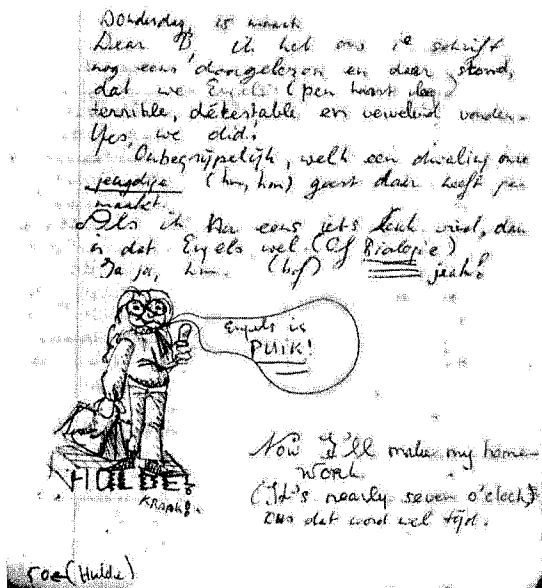 Donderdag, 15 maart
Dear B, ik heb ons 1e schrift
nog eens doorgelezen en daar stond,
dat we Engels (pen wordt leeg)
terrible, détestable en vervelend vonden.
Yes, we did!
Onbegrijpelijk, welk een dwaling onze
jeugdige (hm, hm) geest daar heeft ge-
maakt.
Als ik nu eens iets leuk vind, dan
is dat Engels wel (Of Biologie)
Ja ja, hm. (hof) jeah!
Engels is
PUIK!
HULDE!
KRAAK!
Now I'll make my home-
work
(It's nearly seven o'clock)
Dus dat word wel tijd.
roe (Hulde)